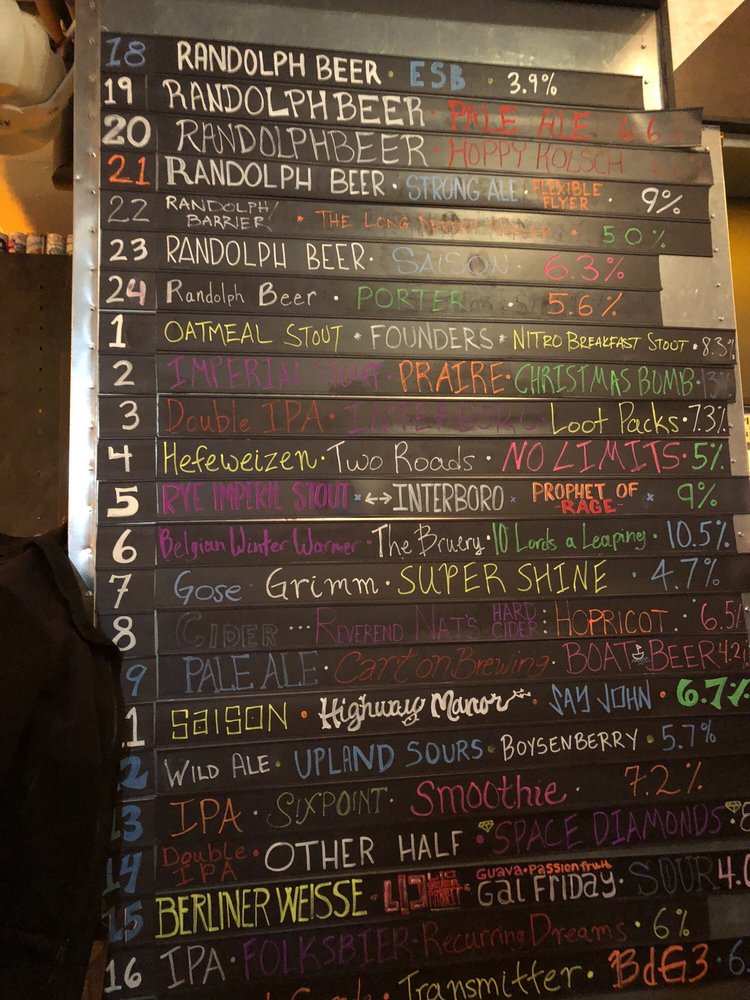 18 RANDOLPH BEER · ESB · 3.9%
19 RANDOLPH BEER · PALE ALE 6.6
20 RANDOLPH BEER · HOPPY KOLSCH
21 RANDOLPH BEER · STRONG ALE · FLEXIBLE FLYER · 9%
22 RANDOLPH/BARRIER! * THE LONG * 5.0%
23 RANDOLPH BEER · SAISON · 6.3%
24 Randolph Beer · PORTER 5.6%
1 OATMEAL STOUT * FOUNDERS * NITRO BREAKFAST STOUT · 8.3%
2 IMPERIAL STOUT · PRAIRE · CHRISTMAS BOMB · 13%
3 Double IPA · INTERBORO Loot Packs · 7.3%
4 Hefeweizen · Two Roads · NO LIMITS · 5%
5 RYE IMPERIL STOUT * ↔ INTERBORO * PROPHET OF -RAGE- * 9%
6 Belgian Winter Warmer · The Bruery · 10 Lords a Leaping · 10.5%
7 Gose · Grimm · SUPER SHINE · 4.7%
8 CIDER ... REVEREND NAT'S HARD CIDER : HOPRICOT · 6.5%
9 PALE ALE · Carton Brewing · BOAT BEER 4.2
.1 SAISON · Highway Manor · SAY JOHN · 6.7%
2 WILD ALE · UPLAND SOURS · BOYSENBERRY · 5.7%
13 IPA · SIXPOINT · Smoothie · 7.2%
14 Double IPA · OTHER HALF · SPACE DIAMONDS · 8
15 BERLINER WEISSE · LIC LIC BEER PROJECT Guava · Passionfruit Gal Friday · SOUR 4.0
16 IPA · FOLKSBIER · Recurring Dreams · 6%
Transmitter · BdG3 · 6